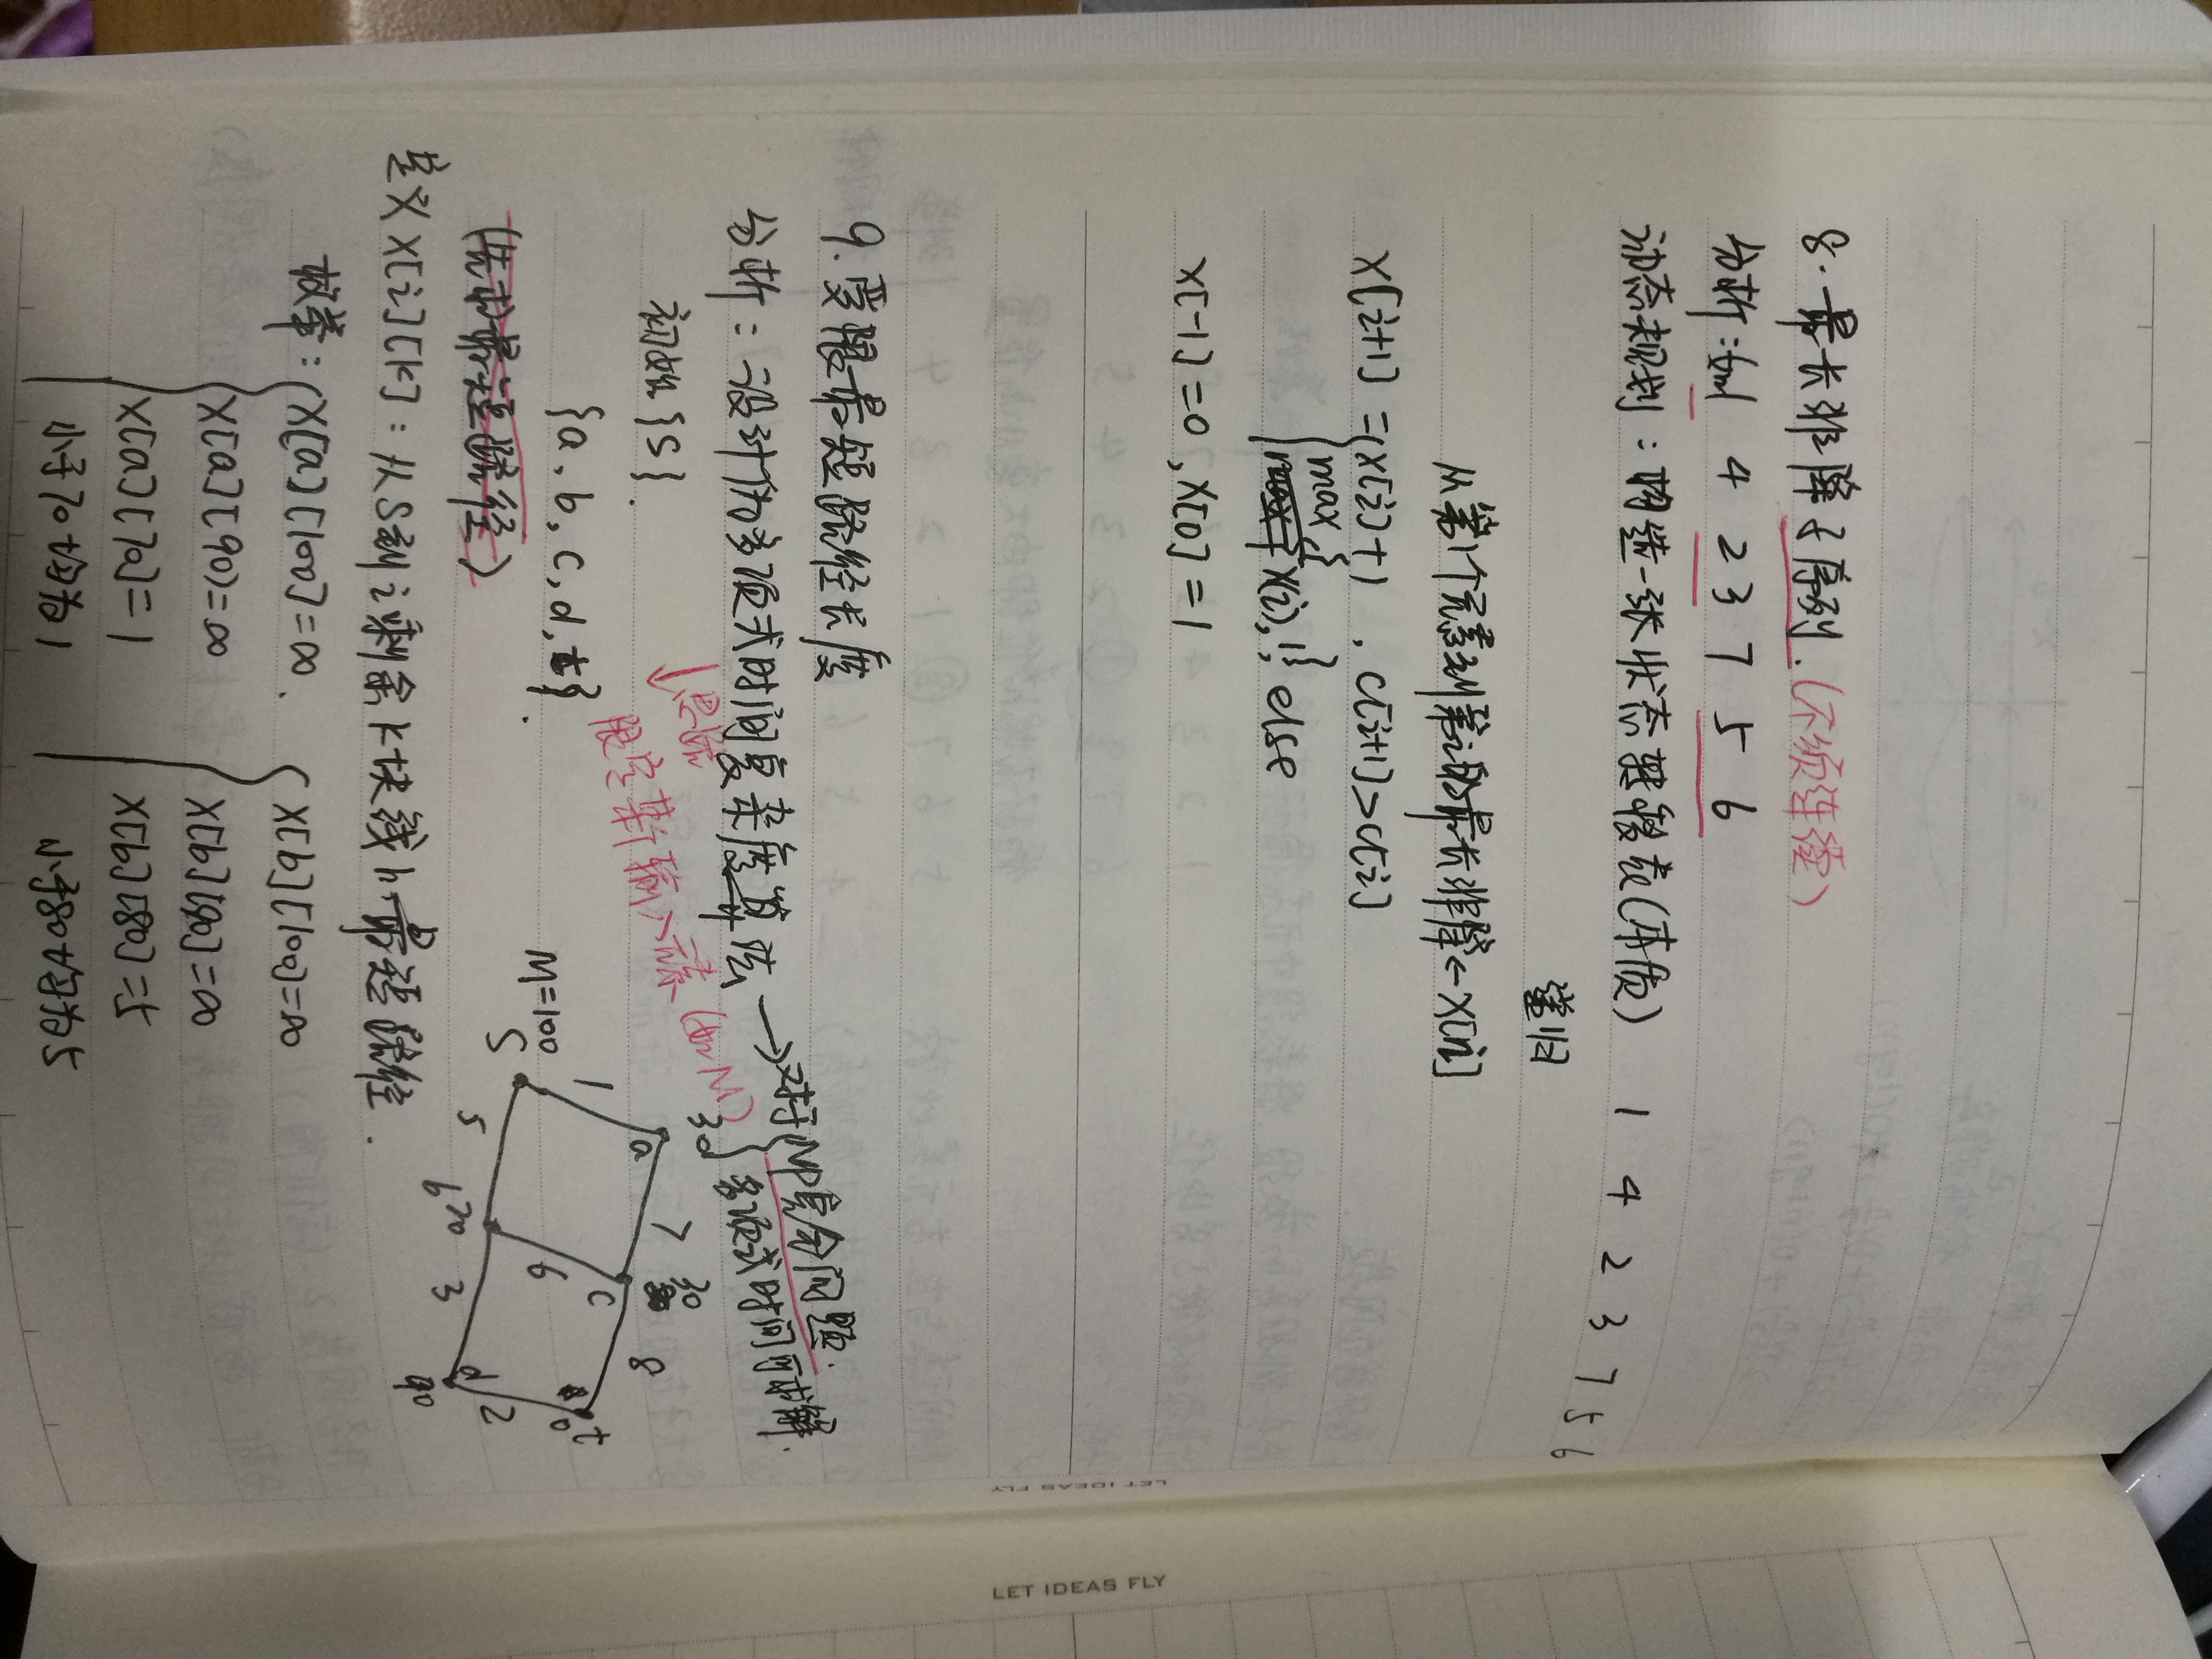 8. 最长非降子序列.(不须连续)
分析: 1 4 2 3 7 5 6
动态规划:构造一张状态转移表(本质) 1 4 2 3 7 5 6
递归
从第1个元素到第i的最长非降←X[i]
X[i+1] = X[i]+1 , C[i+1]>C[i]
max{
X[i],1}, else
X[-1]=0,X[0]=1
LET IDEAS FLY
9.受限最短路径长度
分析:设计伪多项式时间复杂度算法→对于NP完全问题.
多项式时间可求解.
↓思路
限定某个输入元素(如M)
初始{S}.
{a,b,c,d,t}.
(先求最短路径)
30 a 7 30 c 8 t 0
1 6 2
M=100
S 5 b 20 3 d 90
定义X[i][k]:从S到i剩余k块钱的最短路径.
枚举: X[a][100]=∞. X[b][100]=∞
X[a][90]=∞ X[b][90]=∞
X[a][70]=1 X[b][80]=5
小于70均为1 小于80均为5